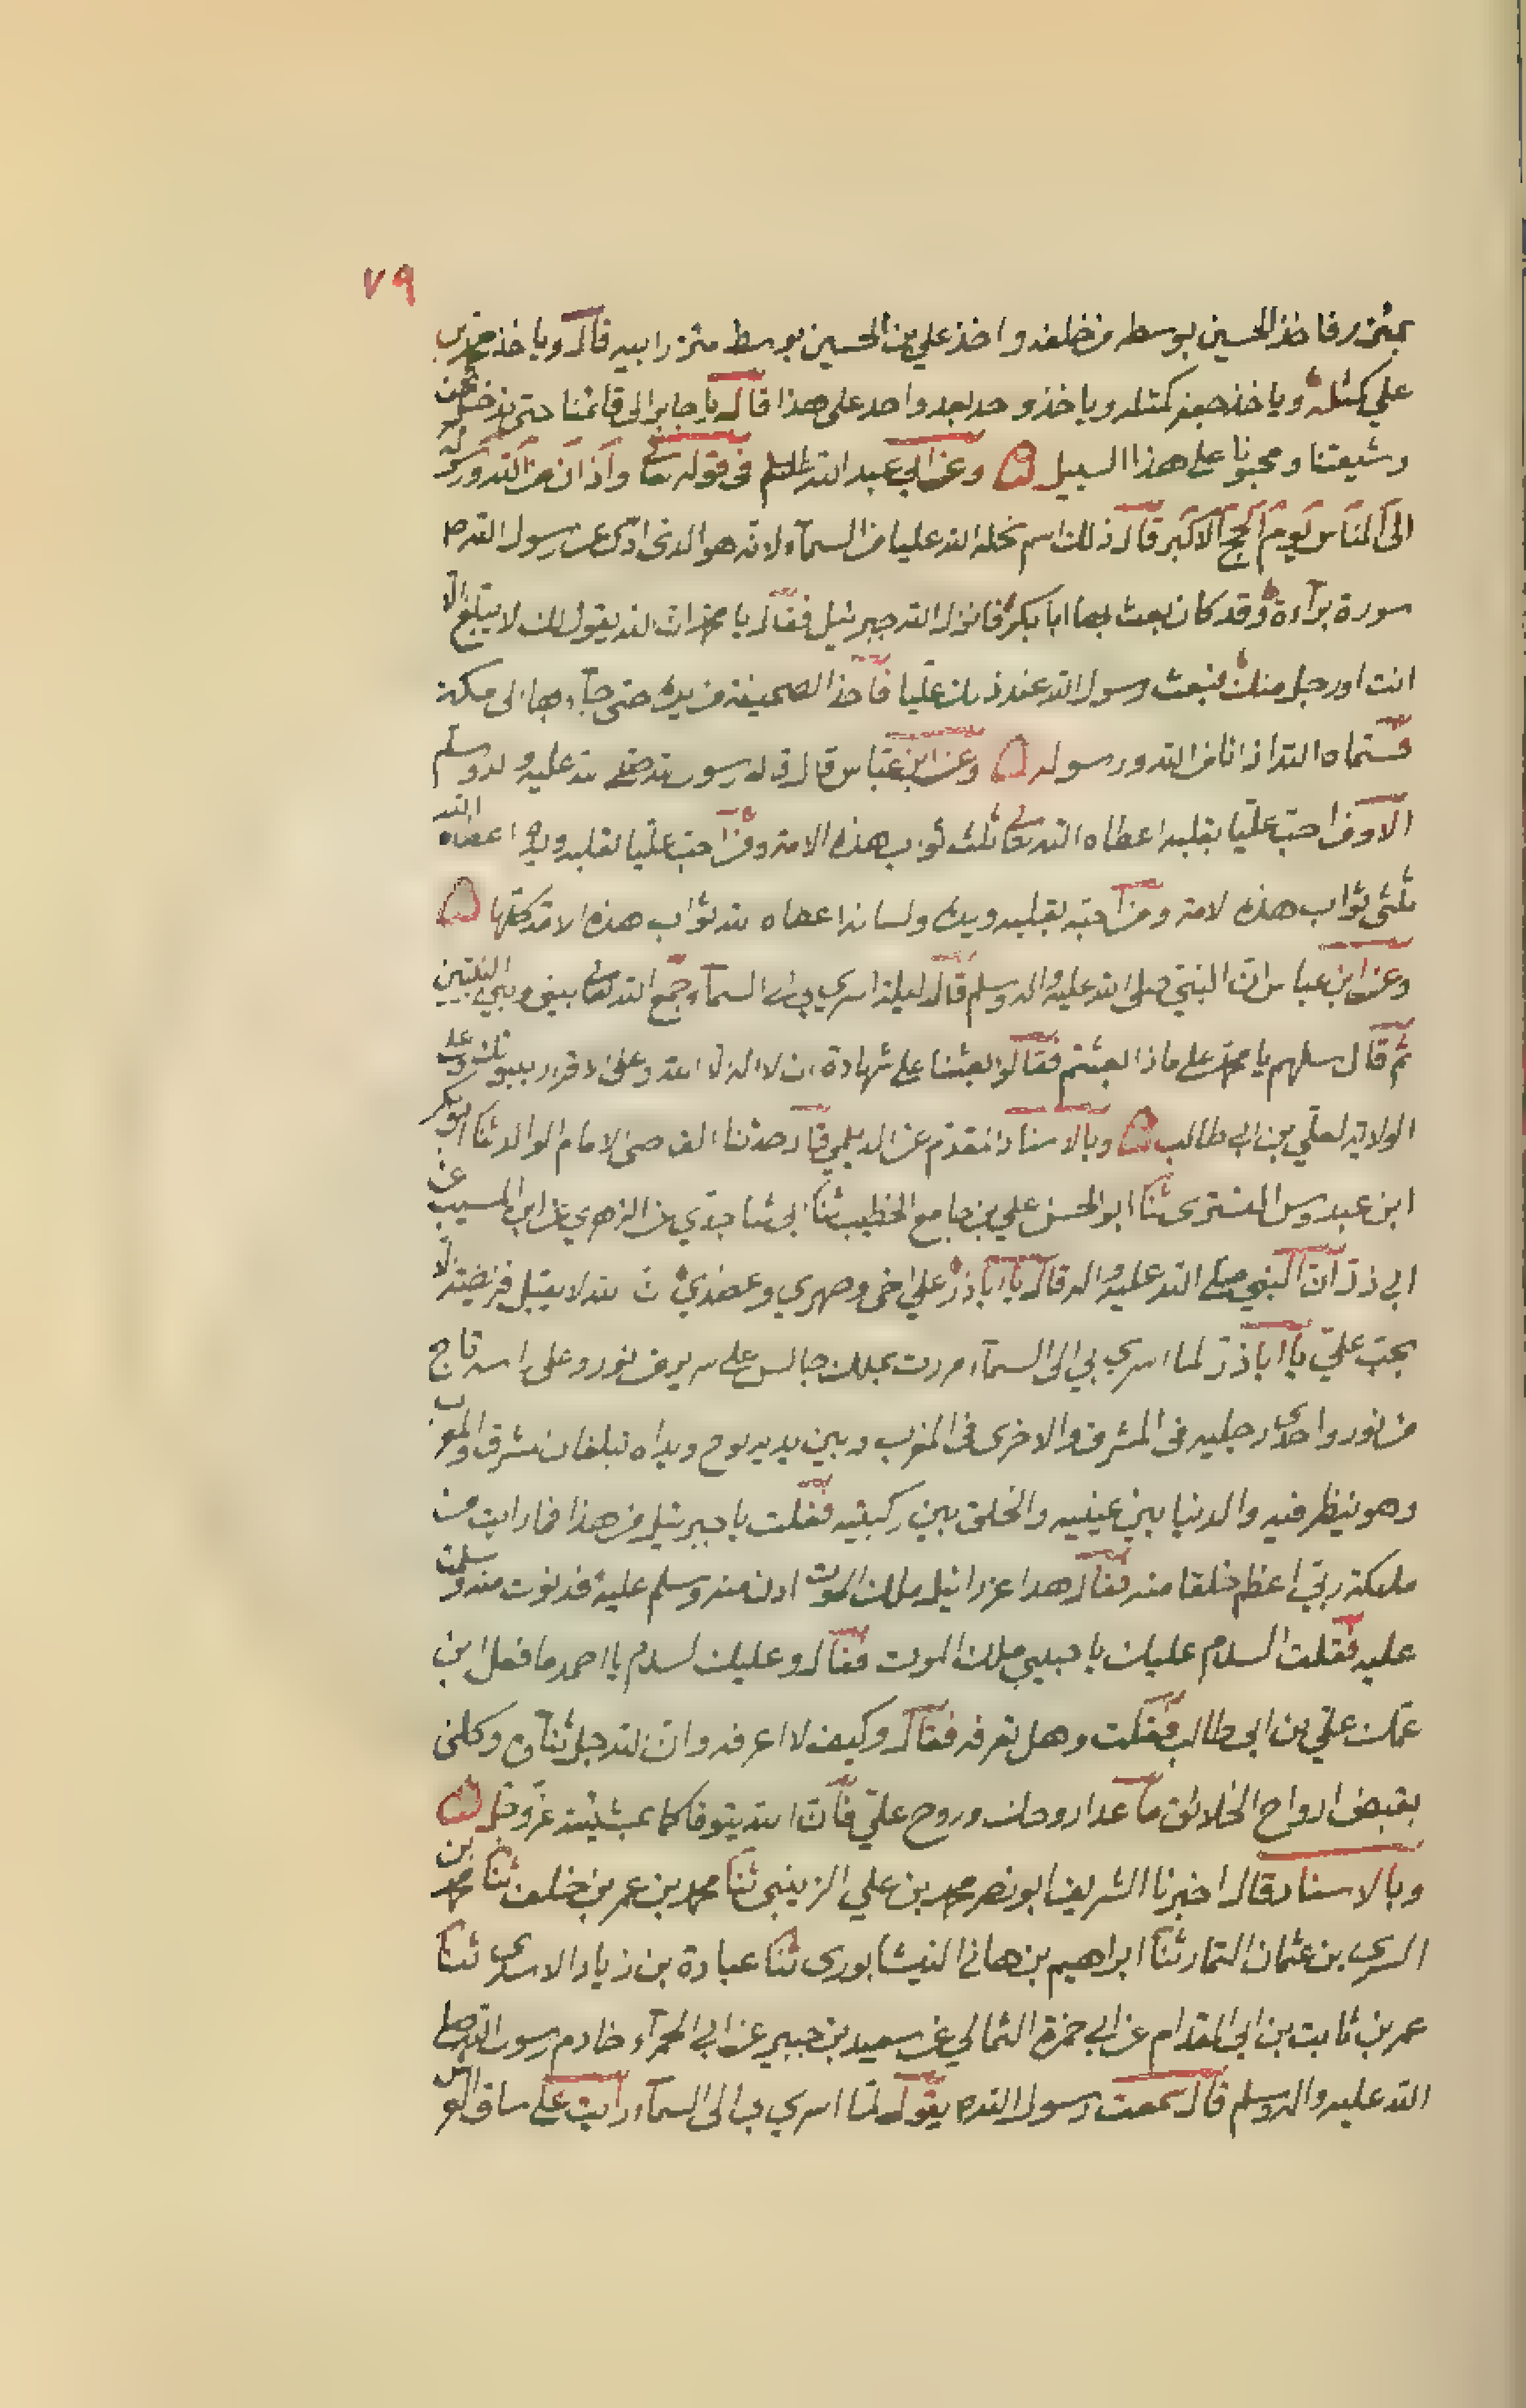 ٧٩
بمئزره فاخذ الحسين بوسطه من خلفه واخذ علي بن الحسين بوسط مئزر ابيه قال وياخذ محمد بن
علي كمثله وياخذ جعفر كمثله وياخذ وحد بعد واحد على هذا قال يا جابر الى قائمنا حتى ندخل نحن
وشيعتنا ومحبونا على هذا السبيل وعن ابي عبد الله في قوله تعا واذان من الله ورسوله
الى الناس يوم الحج الاكبر قال ذلك اسم نحله الله عليا من السماء لانه هو الذى ادى عن رسول الله ص
سورة براءة وقد كان بعث بها ابا بكر فانزل الله جبرئيل فقال يا محمد ان الله يقول لك لا يبلغ الا
انت او رجل منك فبعث رسول الله عند ذلك عليا فاخذ الصحيفة من يده حتى جاء بها الى مكة
فسماه الله اذانا من الله ورسوله وعن ابن عباس قال قال رسول الله صلى الله عليه واله وسلم
الا ومن احب عليا بقلبه اعطاه الله تعا ثلث ثواب هذه الامة ومن احب عليا بقلبه ويده اعطاه الله
ثلثى ثواب هذه الامة ومن احبه بقلبه ويده ولسانه اعطاه الله ثواب هذه الامة كلها
وعن ابن عباس ان النبي صلى الله عليه واله وسلم قال ليلة اسري بي الى السماء جمع الله تعا بيني وبين النبيين
ثم قال سلهم يا محمد على ماذا بعثتم فقالوا بعثنا على شهادة ان لا اله الا الله وعلى الاقرار بنبوتك وعلى
الولاية لعلي بن ابي طالب وبالاسناد المتقدم عن الديلمي قال حدثنا الامام الوالد ثنا ابو بكر
ابن عبدوس التسترى ثنا ابو الحسن علي بن جامع الخطيب ثنا ابي ثنا جدي عن الزهري عن ابن المسيب عن
ابي ذر ان النبي صلى الله عليه واله قال يا ابا ذر علي اخى وصهري وعضدي ان الله لا يقبل فريضة الا
بحب علي يا ابا ذر لما اسري بي الى السماء مررت بملك جالس على سرير من نور وعلى راسه تاج
من نور واحدى رجليه فى المشرق والاخرى فى المغرب وبين يديه لوح ويداه تبلغان المشرق والمغرب
وهو ينظر فيه والدنيا بين عينيه والخلق بين ركبتيه فقلت يا جبرئيل من هذا فما رايت من
ملئكة ربي اعظم خلقا منه فقال هذا عزرائيل ملك الموت ادن منه وسلم عليه فدنوت منه وسلمت
عليه فقلت السلام عليك يا حبيبي ملك الموت فقال وعليك السلام يا احمد ما فعل ابن
عمك علي بن ابي طالب فقلت وهل تعرفه فقال وكيف لا اعرفه وان الله جل ثناؤه وكلنى
بقبض ارواح الخلائق ما عدا روحك وروح علي فان الله يتوفاكما بمشيئته عز وجل
وبالاسناد قال اخبرنا الشريف ابو نصر محمد بن علي الزينبى ثنا محمد بن عمر بن خلف ثنا محمد بن
السري بن عثمان التمار ثنا ابراهيم بن هاني النيشابورى ثنا عبادة بن زياد الاسدى ثنا
عمر بن ثابت بن ابي المقدام عن ابي حمزة الثمالي عن سعيد بن جبير عن ابي الحمراء خادم رسول الله صلى
الله عليه واله وسلم قال سمعت رسول الله ص يقول لما اسري بي الى السماء رايت على ساق العرش